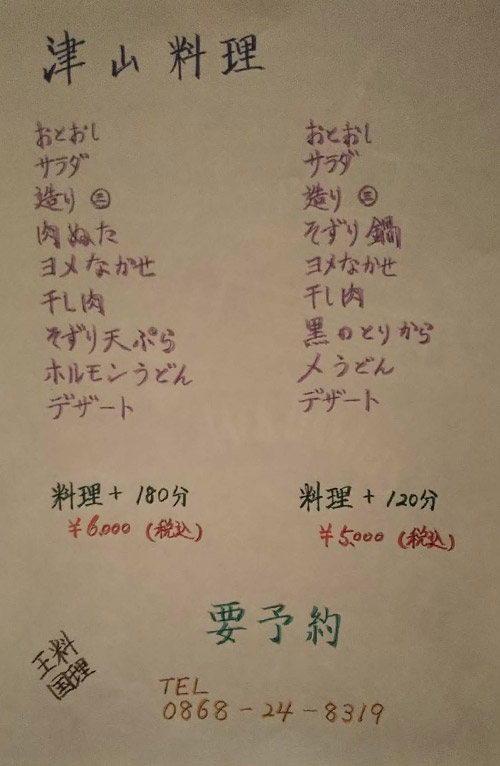 津山料理
おとおし
サラダ
造り㊂
肉ぬた
ヨメなかせ
干し肉
そずり天ぷら
ホルモンうどん
デザート
料理+180分
¥6,000(税込)
おとおし
サラダ
造り㊂
そずり鍋
ヨメなかせ
干し肉
黒のとりから
〆うどん
デザート
料理+120分
¥5,000(税込)
要予約
料理
王国
TEL
0868-24-8319